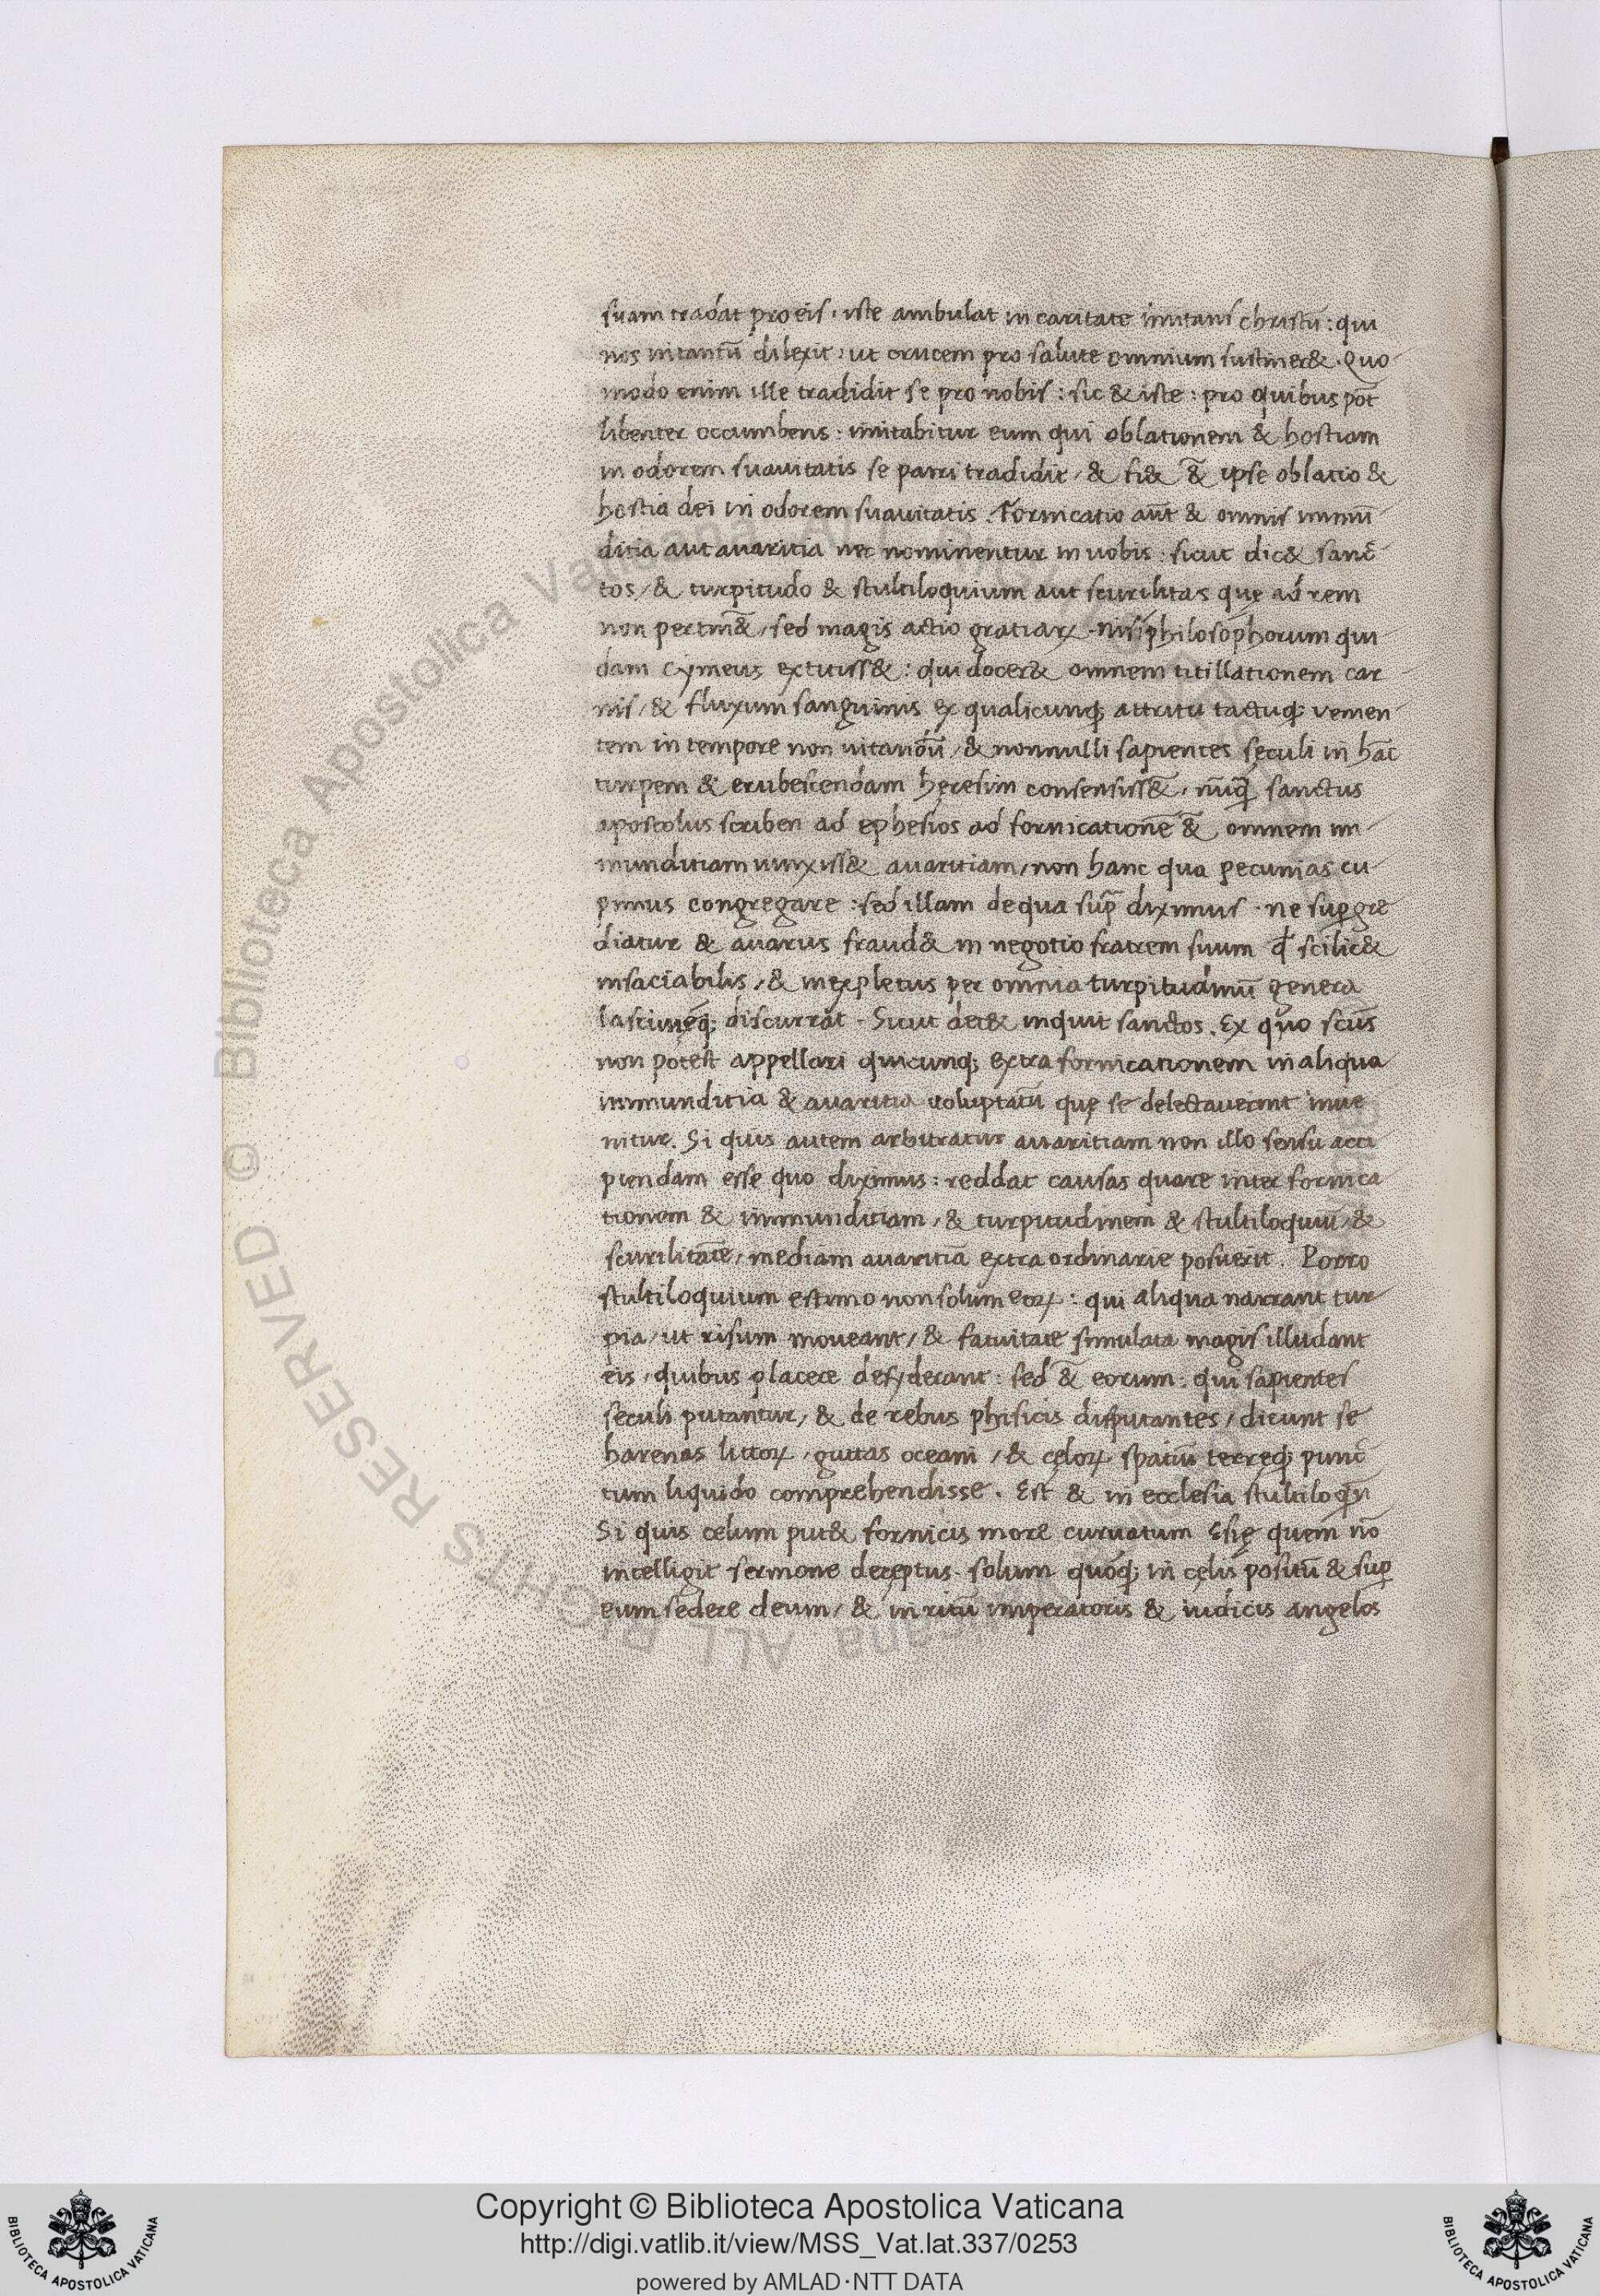 suam tradat pro eis, iste ambulat in caritate imitans christū: qui
nos in tantū dilexit, ut crucem pro salute omnium sustiner&. Quo-
modo enim ille tradidit se pro nobis: sic & iste: pro quibus pot̄
libenter occumbens: imitabitur eum qui oblationem & hostiam
in odorem suauitatis se patri tradidit, & fi& &̄ ipse oblatio &
hostia dei in odorem suauitatis. Fornicatio aūt & omnis inmū
ditia aut auaritia nec nominentur in uobis: sicut dic& sanc̄-
tos, & turpitudo & stultiloquium aut scurilitas quę ad rem
non pertin&̄, sed magis actio gratiaꝝ. Nisi philosophorum qui-
dam Cymeus extitiss&: qui docer& omnem titillationem car-
nis, & fluxum sanguinis ex qualicunq; attritu tactuq; vemen-
tem in tempore non uitandū, & nonnulli sapientes seculi in hāc
turpem & erubescendam heresim consensiss&̄, nūq̄ sanctus
apostolus scriben ad ephesios ad fornicationē &̄ omnem im-
munditiam uinxiss& auaritiam, non hanc qua pecunias cu-
pimus congregare: sed illam de qua sup̄ diximus. ne sup̲gre
diatur & auarus fraud& in negotio fratrem suum q̄ scilic&
insaciabilis, & inexpletus per omnia turpitudinū genera
lasciuięq; discurrat. Sicut dec& inquit sanctos. Ex quo scūs
non potest appellari quicunq; extra fornicationem in aliqua
immunditia & auaritia uoluptatū quę se delectauerint inue
nitur. Si quis autem arbitratur auaritiam non illo sensu acci
piendam esse quo diximus: reddat causas quare inter fornica
tionem & immunditiam, & turpitudinem & stultiloquiū, &
scurilitatē, mediam auaritiā extra ordinarie posuerit. Porro
stultiloquium estimo non solum eoꝝ: qui aliqua narrant tur-
pia, ut risum moueant, & fatuitate simulata magis illudant
eis, quibus placere desyderant: sed &̄ eorum: qui sapientes
seculi putantur, & de rebus phisicis disputantes, dicunt se
harenas littoꝝ, guttas oceani, & cęloꝝ spatiū terreq; punc̄
tum liquido comprehendisse. Est & in ecclesia stultiloq̄n
Si quis celum put& fornicis more curuatum Esię quem nō
intelligit sermone deceptus. solum quoq; in cęlis positū & sup̲
eum sedere deum, & in ritū imperatoris & iudicis angelos
Copyright © Biblioteca Apostolica Vaticana
http://digi.vatlib.it/view/MSS_Vat.lat.337/0253
powered by AMLAD·NTT DATA